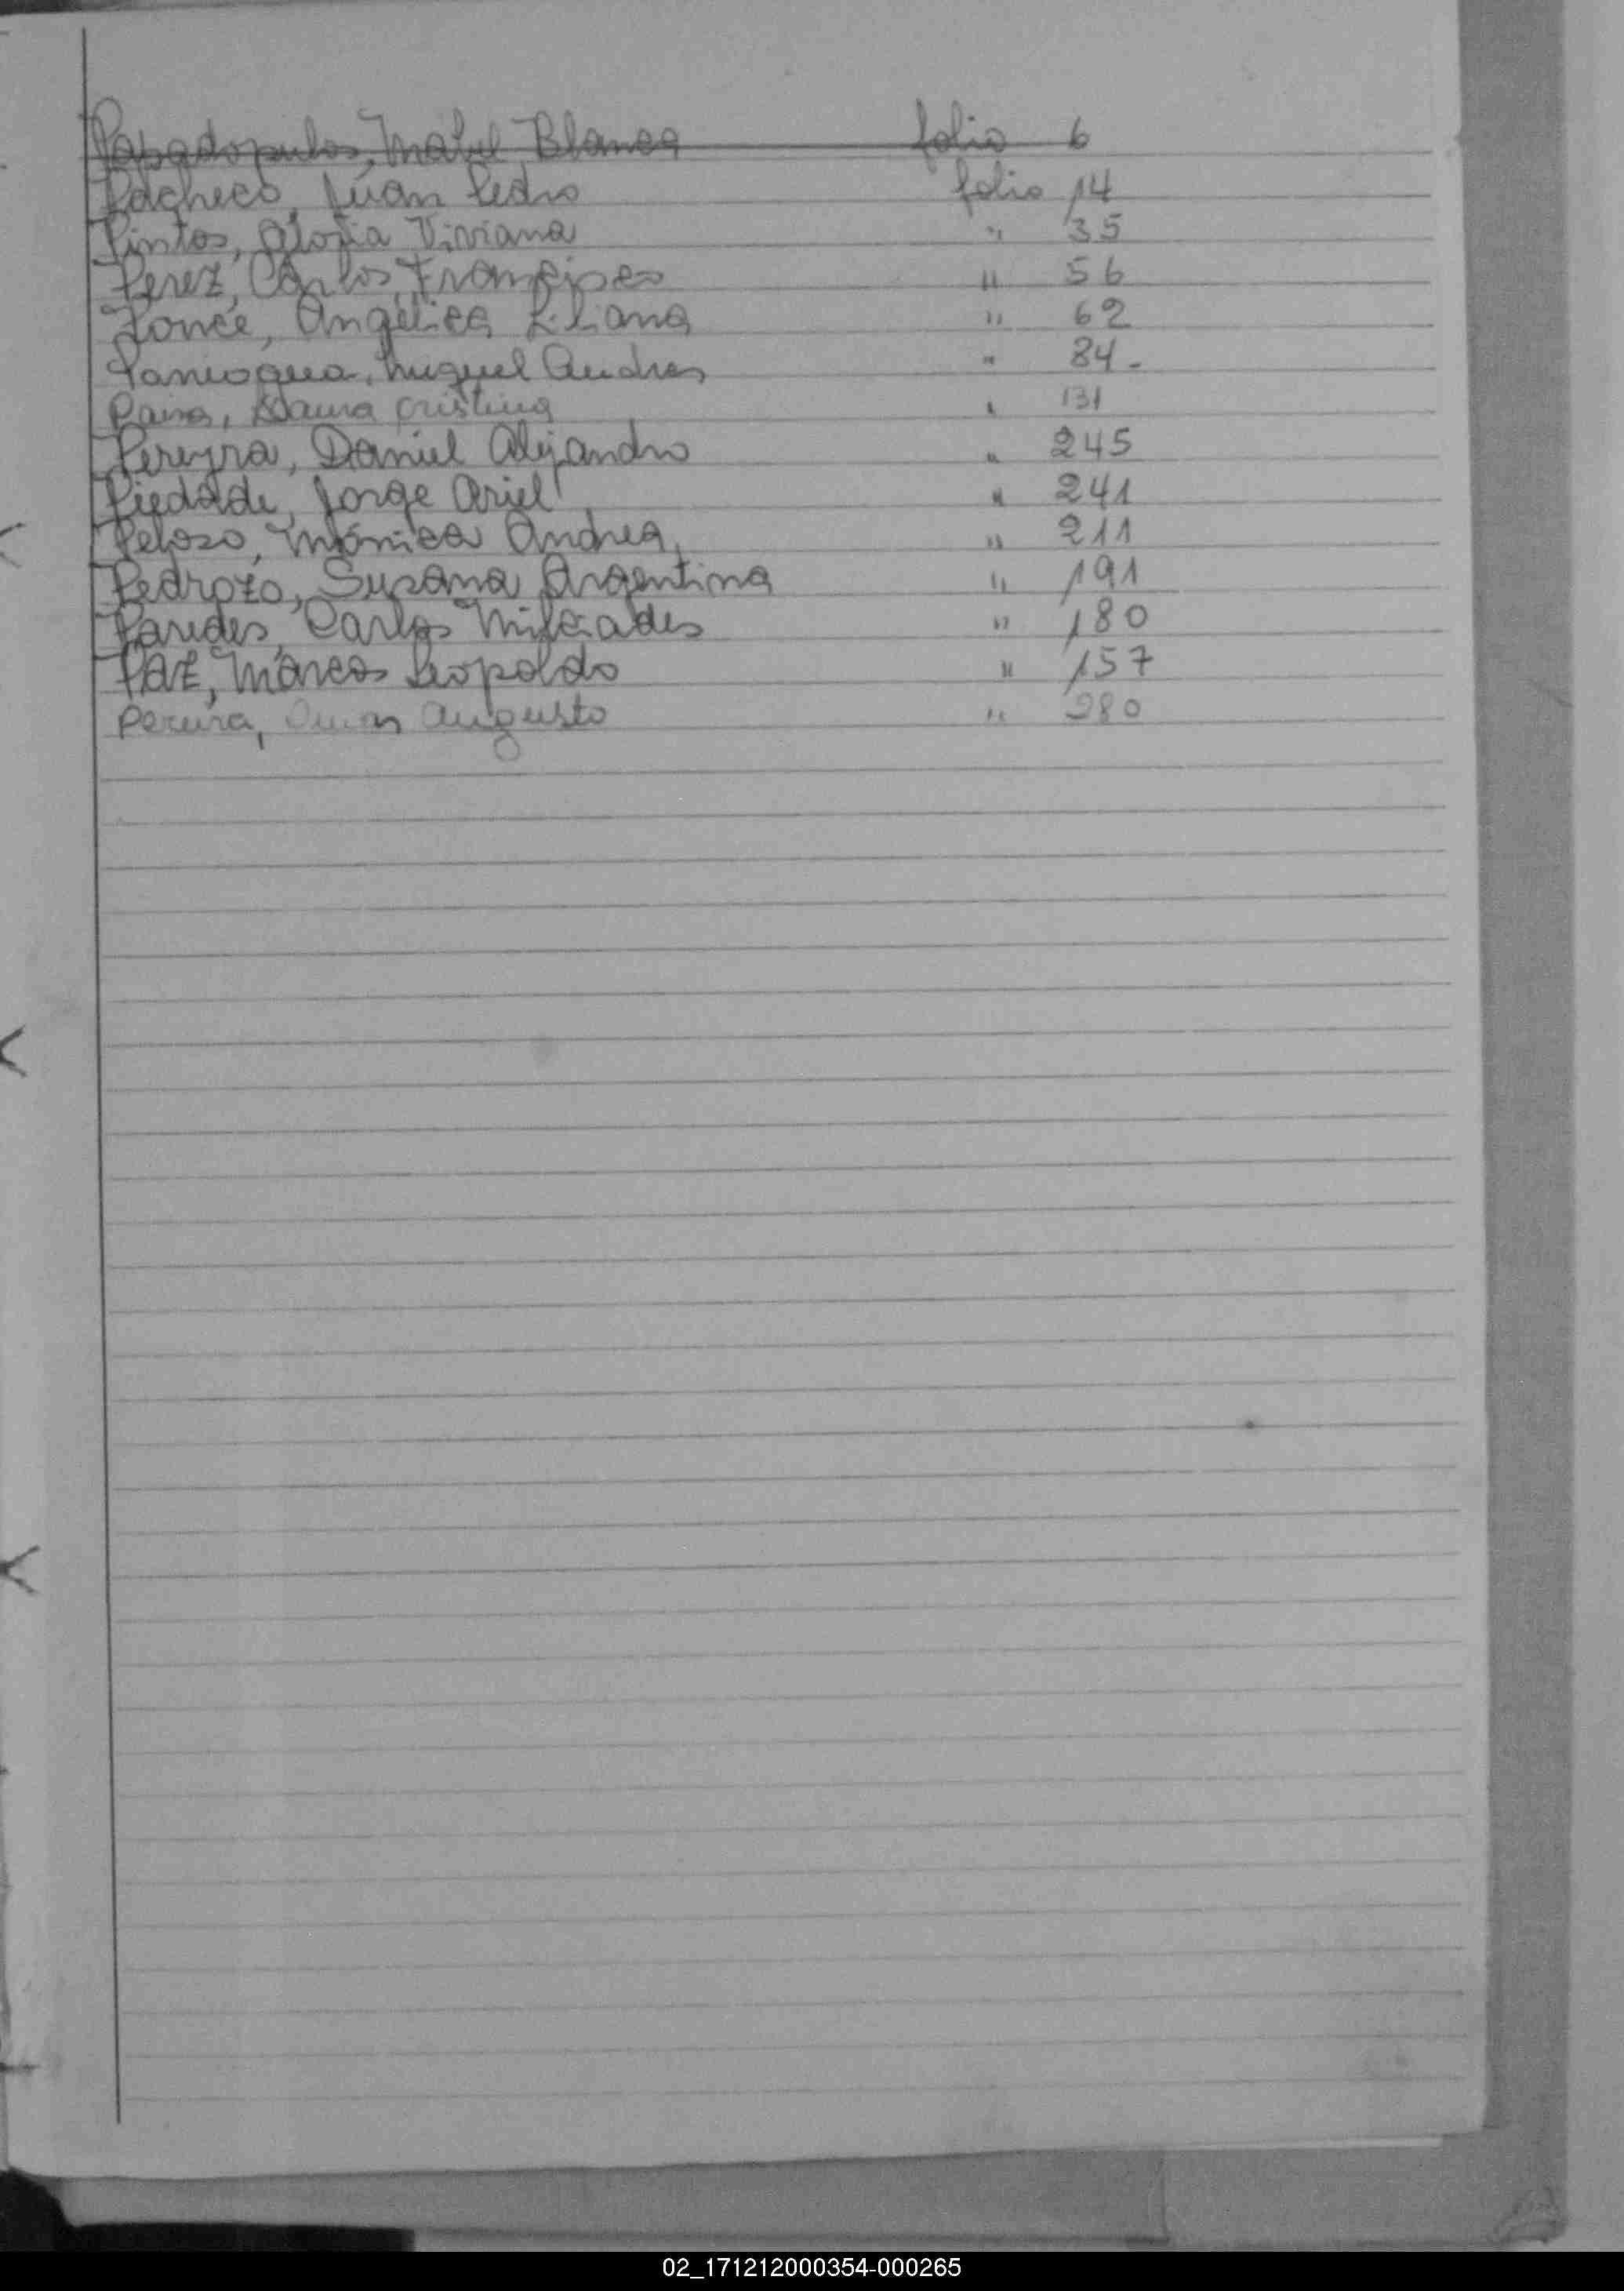 Papadopulos, Mabel Blanca folio 6
Pacheco, Juan Pedro folio 14
Pintos, Gloria Viviana " 35
Perez, Carlos Francisco " 56
Ponce, Angélica Liliana " 62
Miguel Andres " 84-
Cristina " 131
Pereyra, Daniel Alejandro " 245
Piedade, Jorge Ariel " 241
Peloso, Mónica Andrea " 211
Pedrozo, Susana Argentina " 191
Paredes, Carlos Milciades " 180
Paz, Marcos Leopoldo " 157
Pereira, Augusto " 280
02_171212000354-000265